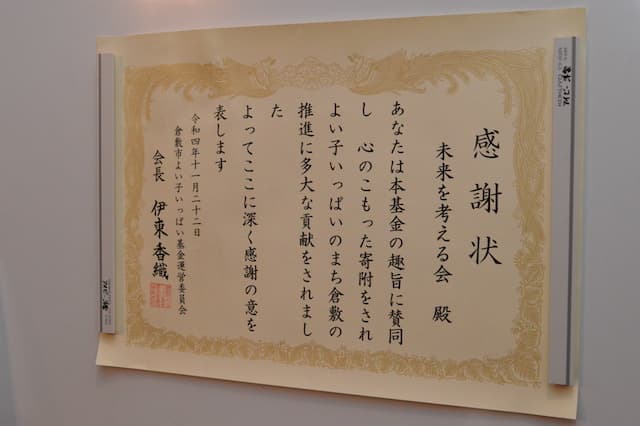 感謝状
未来を考える会 殿
あなたは本基金の趣旨に賛同
し 心のこもった寄附をされ
よい子いっぱいのまち倉敷の
推進に多大な貢献をされまし
た
よってここに深く感謝の意を
表します
令和四年十一月二十二日
倉敷市よい子いっぱい基金運営委員会
会長 伊東香織